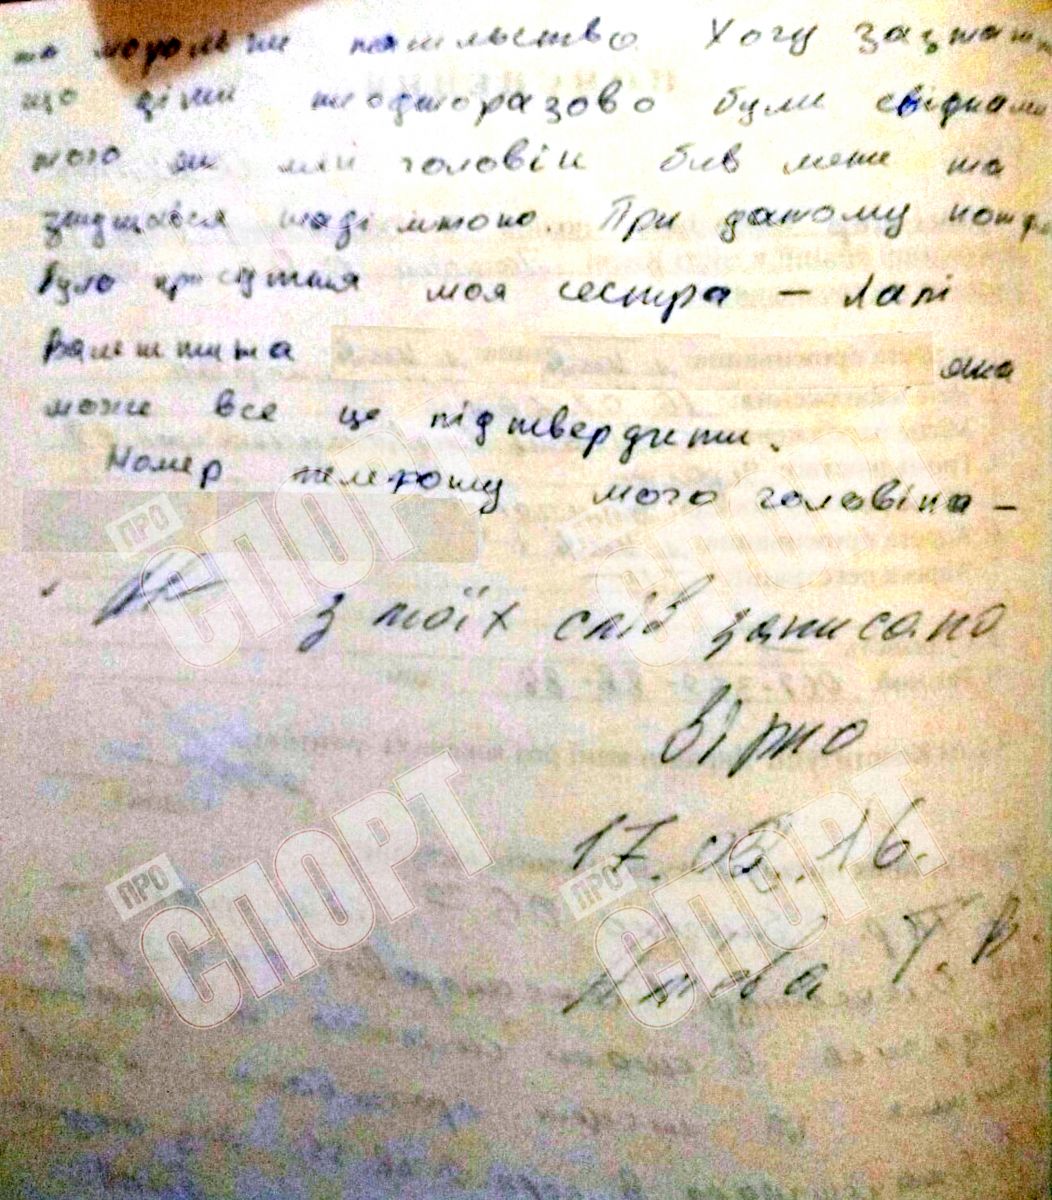 та моральне насильство. Хочу зазначити
що діти неодноразово були свідками
того як мій чоловік бив мене та
знущався наді мною. При даному конфлі
була присутня моя сестра – Лапі
Валентина яка
може все це підтвердити.
Номер телефону мого чоловіка –
З моїх слів записано
вірно
17. .16.
ПРО
СПОРТ
ПРО
СПОРТ
ПРО
СПОРТ
ПРО
СПОРТ